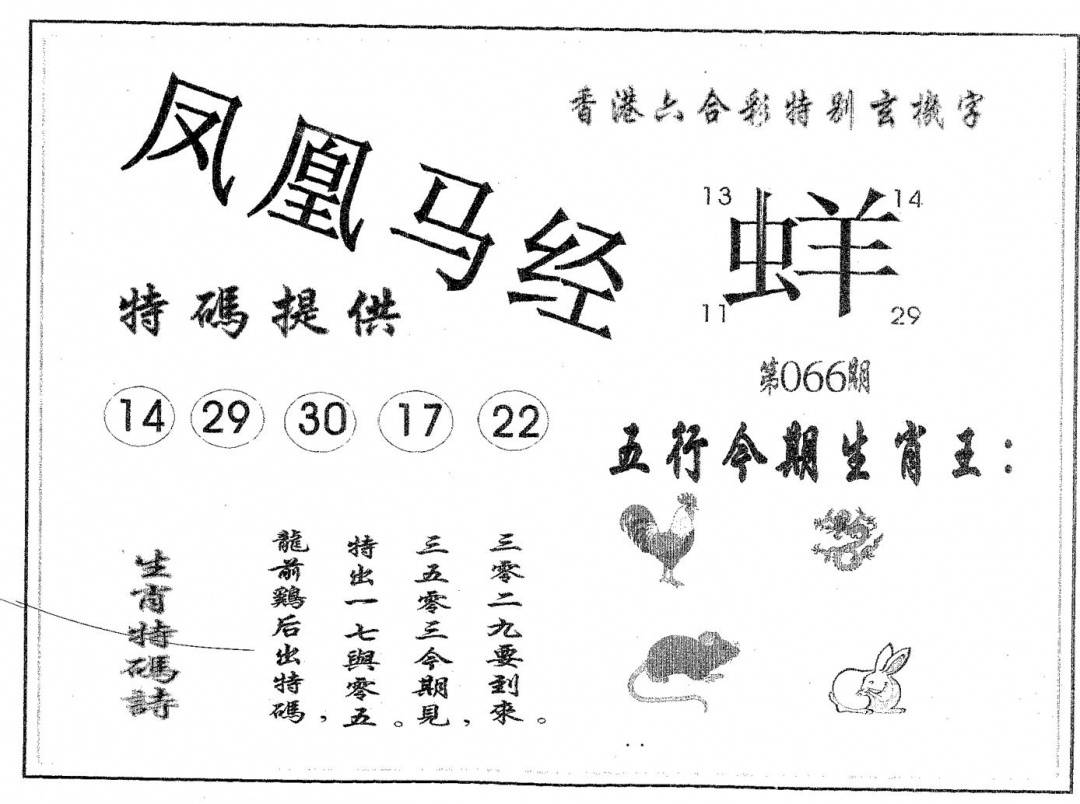 凤凰马经
香港六合彩特别玄機字
13 14
蛘
11 29
特碼提供
第066期
14 29 30 17 22
五行今期生肖王：
生肖特碼詩
龍前鷄后出特碼，
特出一七與零五。
三五零三今期見，
三零二九要到來。